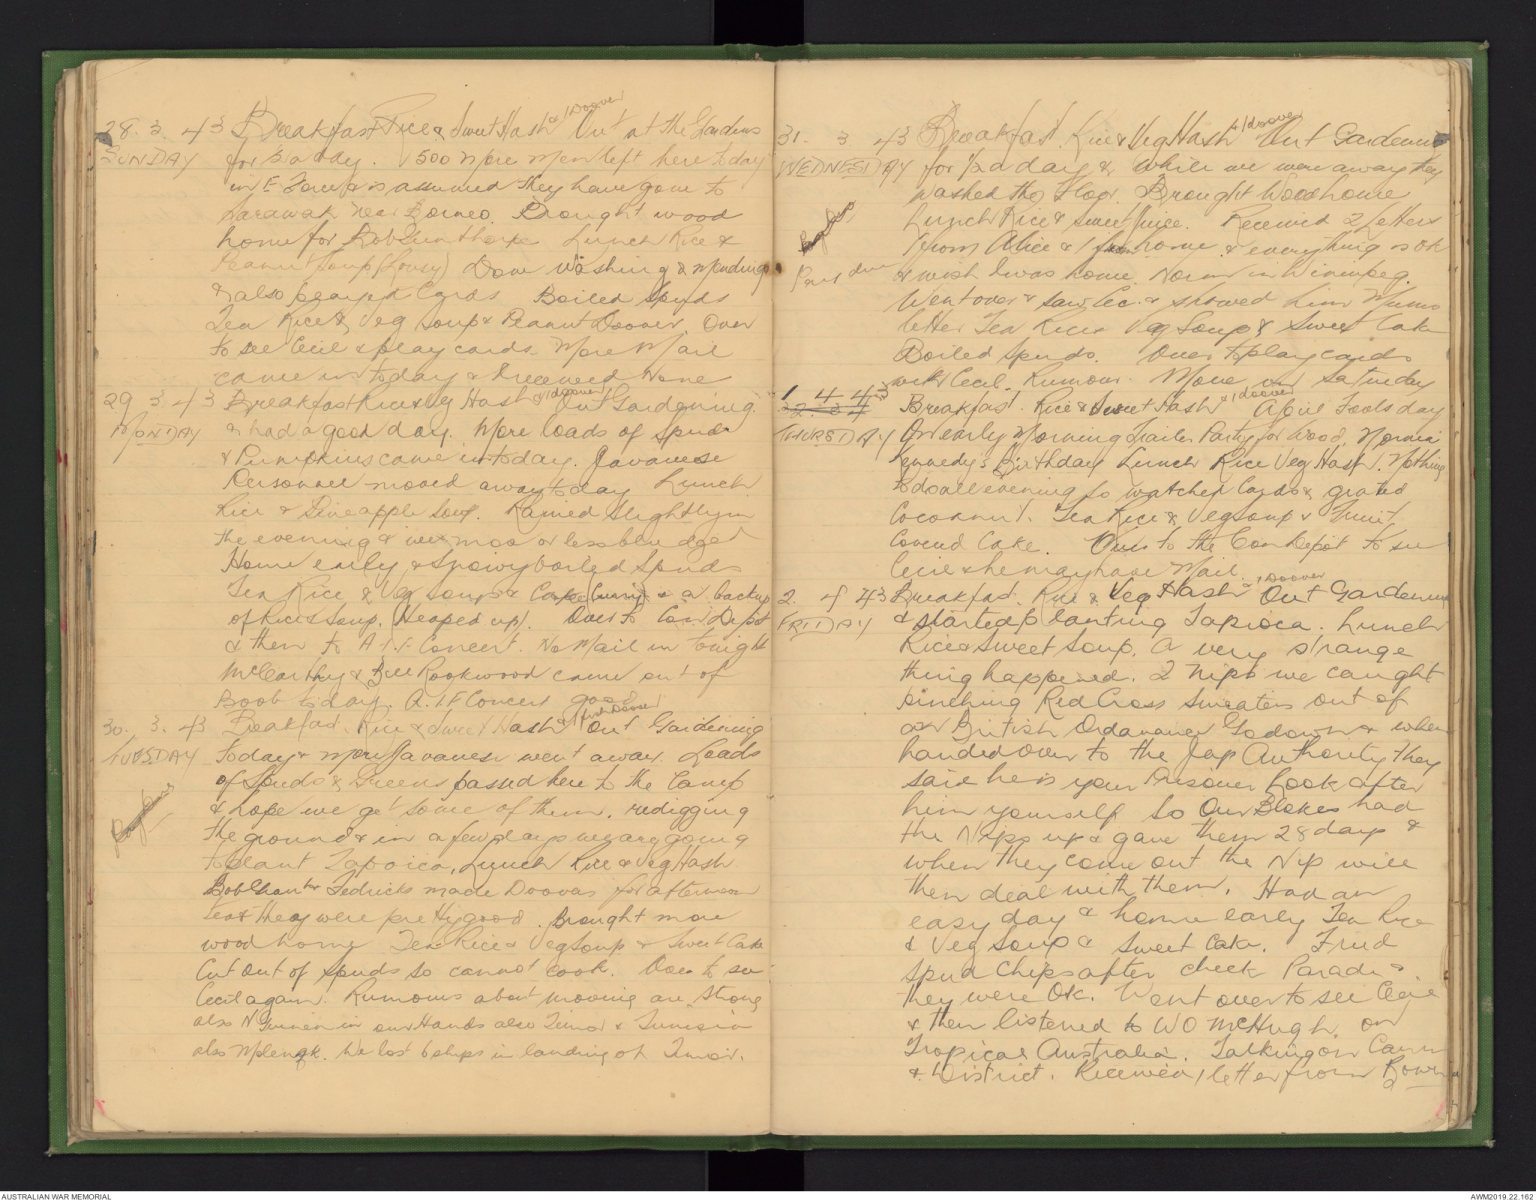 28. 3. 43 Breakfast Rice & Sweet Hash & 1 Doover Out at the Gardens
SUNDAY for ½ a day. 1500 more men left here today
in E Force & is assumed they have gone to
Sarawak near Borneo. Brought wood
home for Bob Gunthorpe Lunch Rice &
Peanut Soup (Lousy) Done Washing & Mending
& also played Cards Boiled Spuds
Tea Rice & Veg Soup & Peanut Doover. Over
to see Cecil & play cards. More Mail
came in today & I received None
29 3 43 Breakfast Rice & Veg Hash & 1 doover Out Gardening
MONDAY & had a good day. More loads of Spuds
& Pumpkins came in today. Javanese
Personnel moved away today Lunch
Rice & Pineapple Soup. Rained slightly in
the evening & we more or less bludged
Home early & Snowy boiled Spuds
Tea Rice & Veg soup & Cake (curry) & a backup
of Rice & Soup. (Heaped up). Over to Con Depot
& then to A.I.F Concert. No Mail in tonight
McCarthy & Bill Rookwood came out of
Boob today. A.I.F Concert good
30. 3. 43 Breakfast. Rice & Sweet Hash & 1 Doover Out Gardening
TUESDAY today & more Javanese went away. Loads
of Spuds & Greens passed here to the Camp
& hope we get some of them. redigging
the ground & in a few days we are going
to plant Tapioca, Lunch Rice & Veg Hash
Bob Fedricks made Doovas for afternoon
tea & they were pretty good. Brought more
wood home Tea Rice & Veg Soup & Sweet Cake
Cut out of spuds so cannot cook. Over to see
Cecil again. Rumours about moving are strong
also N in our Hands also Timor & Tunisia
also We lost 6 ships in landing at Timor.
31. 3 43 Breakfast. Rice & Veg Hash & 1 doover Out Gardening
WEDNESDAY for ½ a day & while we were away they
washed the Floor. Brought Wood home
Lunch Rice & Sweet Juice. Received 2 letters
from Alice & 1 from home & everything is ok
& wish I was home. Norm in Winnipeg.
Went over & saw Cec. & showed him Mums
letter Tea Rice & Veg Soup & Sweet Cake
Boiled Spuds. Over to play cards
with Cecil. Rumour. Move on Saturday
1 4 43 Breakfast. Rice & Sweet Hash & 1 doover April Fools day
THURSDAY On early Morning Trailer Party for Wood, Norma
Kennedy's Birthday Lunch Rice Veg Hash. Nothing
to do all evening so watched Cards & grated
Cocoanut. Tea Rice & Veg soup & Fruit
Covered Cake. Over to the Con Depot to see
Cecil & he may have Mail.
2. 4 43 Breakfast. Rice & Veg Hash & 1 Doover Out Gardening
FRIDAY & started planting Tapioca. Lunch
Rice & Sweet Soup. A very strange
thing happened. 2 Nips we caught
pinching Red Cross Sweaters out of
our British Ordanance Godown & when
handed over to the Jap Authority they
said he is your Prisoner Look after
him yourself So Our Blokes had
the Nips up & gave them 28 days &
when they come out the Nip will
then deal with them. Had an
easy day & home early Tea Rice
& Veg Soup & Sweet Cake. Fried
Spud Chips after check Parade &
they were OK. Went over to see Cecil
& then listened to WO McHugh, on
Tropical Australia. Talking on Cairns
& District. Received 1 letter from